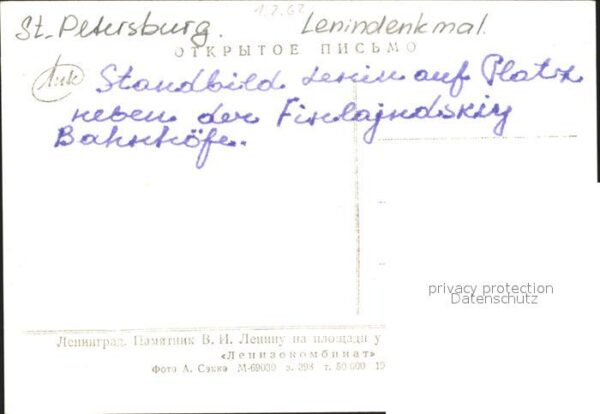 1.2.62
St. Petersburg. Lenindenkmal.
ОТКРЫТОЕ ПИСЬМО
Ank Standbild Lenin auf Platz
neben der Finlajndskiy
Bahnhöfe.
privacy protection
Datenschutz
Ленинград. Памятник В. И. Ленину на площади у
«Ленизокомбинат»
Фото А. Сэккэ М-69039 з. 398 т. 50 000 19